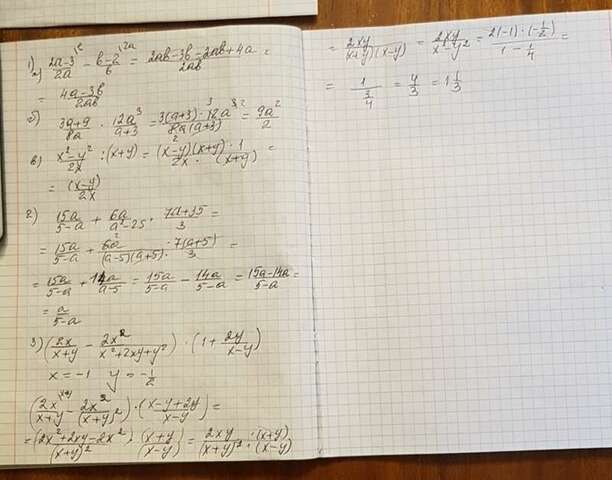 1)
а) (2a-3)/2a - (b-2)/b = (2ab-3b-2ab+4a)/2ab =
= (4a-3b)/2ab
б) (3a+9)/8a · 12a³/(a+3) = 3(a+3)·12a³/8a(a+3) = 9a²/2
в) (x²-y²)/2x : (x+y) = (x-y)(x+y)·1/2x·(x+y) =
= (x-y)/2x
2) 15a/(5-a) + 6a/(a²-25) · (7a+35)/3 =
= 15a/(5-a) + 6a/(a-5)(a+5) · 7(a+5)/3 =
= 15a/(5-a) + 14a/(a-5) = 15a/(5-a) - 14a/(5-a) = (15a-14a)/(5-a) =
= a/(5-a)
3) (2x/(x+y) - 2x²/(x²+2xy+y²)) · (1 + 2y/(x-y))
x = -1 y = -1/2
(2x/(x+y) - 2x²/(x+y)²) · ((x-y+2y)/(x-y)) =
= (2x²+2xy-2x²)/(x+y)² · (x+y)/(x-y) = 2xy/(x+y)² · (x+y)/(x-y)
= 2xy/(x+y)(x-y) = 2xy/(x²-y²) = 2(-1)·(-1/2)/(1-1/4) =
= 1/(3/4) = 4/3 = 1 1/3